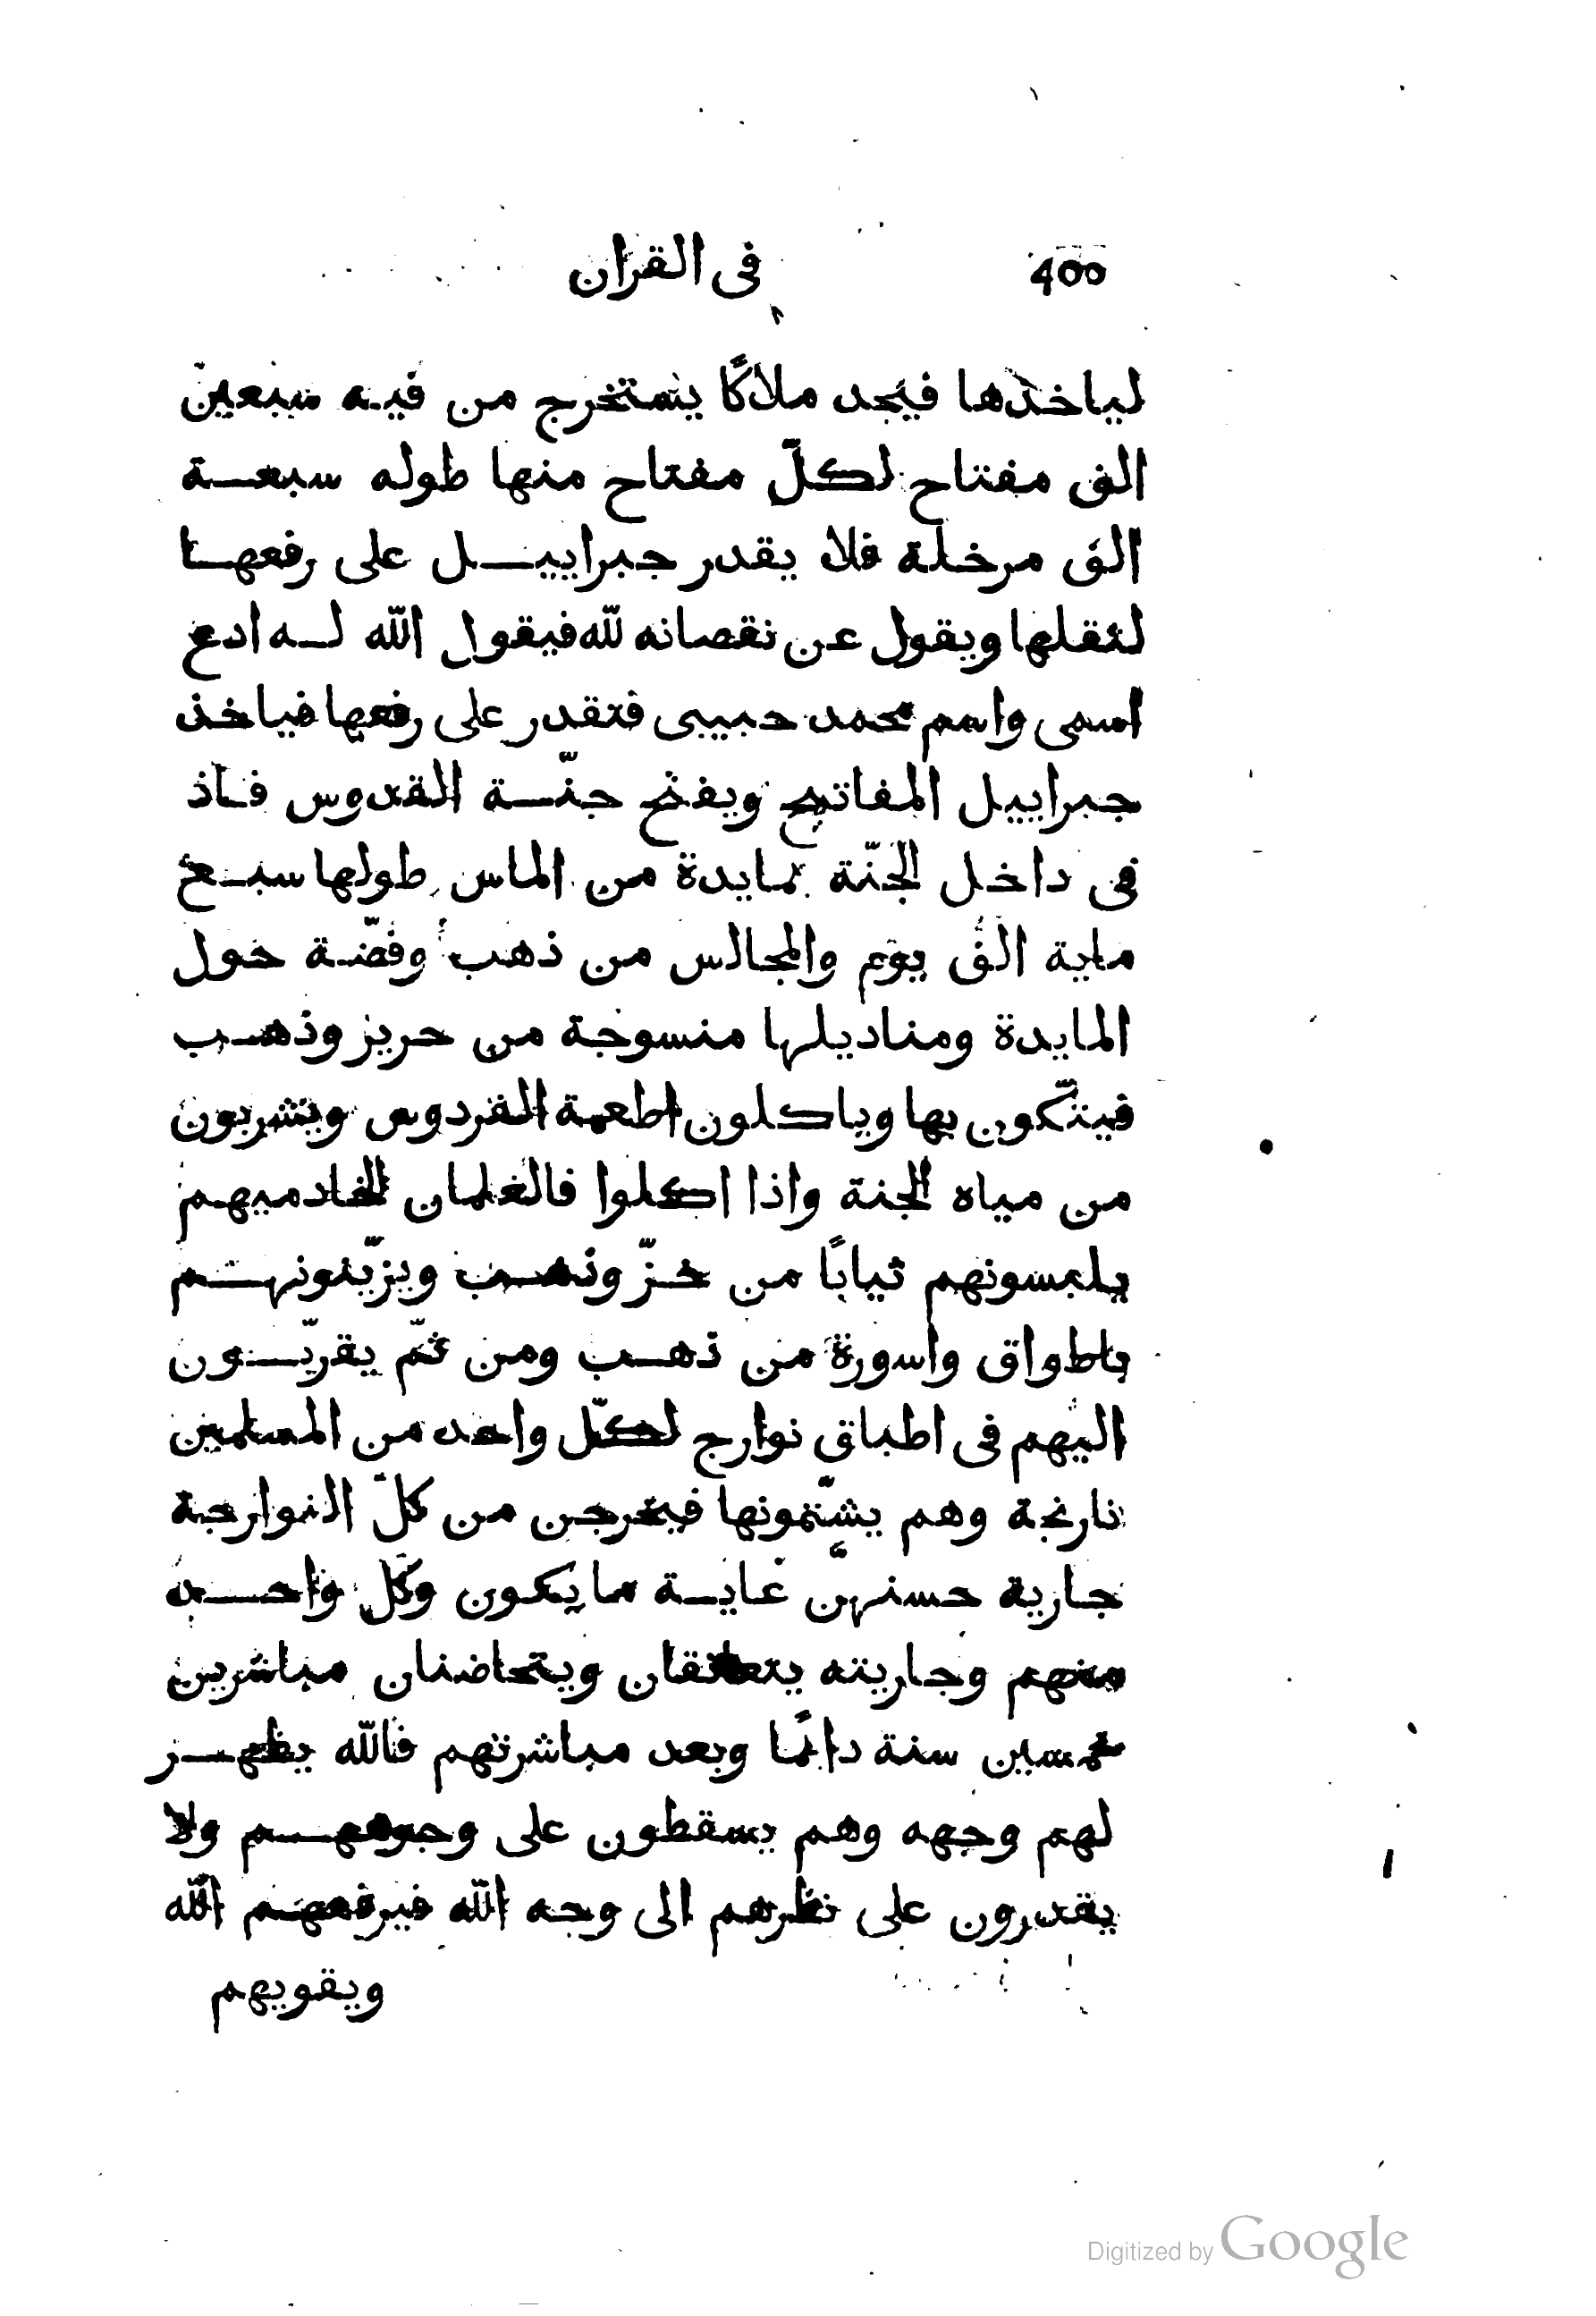 400 فى القران
لياخذها فيجد ملاكًا يستخرج من فيه سبعين
الف مفتاح لكلّ مفتاح منها طوله سبعة
الف مرحلة فلا يقدر جبراييل على رفعها
لثقلها ويقول عن نقصانه للّه فيقول اللّه له ادع
اسمى واسم محمد حبيبى فتقدر على رفعها فياخذ
جبراييل المفاتيح ويفتح جنّة القدوس فاذ
فى داخل الجنّة مايدة من الماس طولها سبع
ماية الف يوم والمجالس من ذهب وفضّة حول
المايدة ومناديلها منسوجة من حرير وذهب
فيتّكون بها وياكلون اطعمة الفردوس ويشربون
من مياه الجنة واذا اكلوا فالغلمان الخادميهم
يلبسونهم ثيابًا من خزّ وذهب ويزيّنونهم
باطواق واسورة من ذهب ومن ثمّ يقرّبون
اليهم فى اطباق نوارج لكلّ واحد من المسلمين
نارنجة وهم يشتّمونها فيخرجن من كلّ النوارجة
جارية حسنهنّ غاية ما يكون وكلّ واحد
منهم وجاريته يتعانقان ويتحاضنان مباشرين
خمسين سنة دائمًا وبعد مباشرتهم فاللّه يظهر
لهم وجهه وهم يسقطون على وجوههم ولا
يقدرون على نظرهم الى وجه اللّه فيرفعهم اللّه
ويقويهم
Digitized by Google